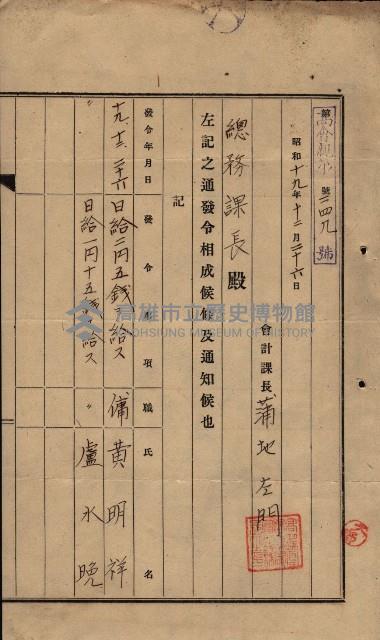 第 號二四九號
昭和十九年十二月二十六日
會計課長 蒲地左門
總務課長殿
左記之通發令相成候條及通知候也
記
發令年月日 發令事項 職 氏名
十九、十二、二十六 日給二円五錢給ス 傭 黄明祥
〃 日給一円十五錢給ス 〃 盧水晚
高雄市立歷史博物館
KAOHSIUNG MUSEUM OF HISTORY